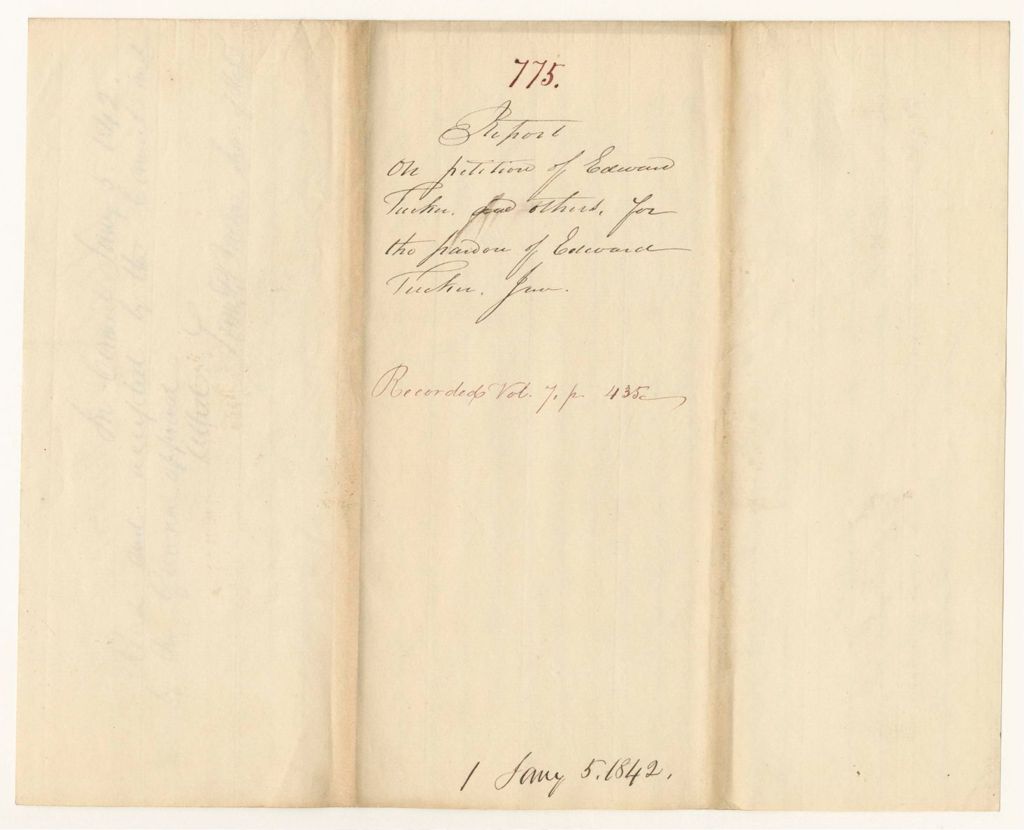 775.
Report
On petition of Edward
Tucker, and others, for
the pardon of Edward
Tucker, Jun.
Recorded Vol. 7, p 435
1 Jany 5. 1842.